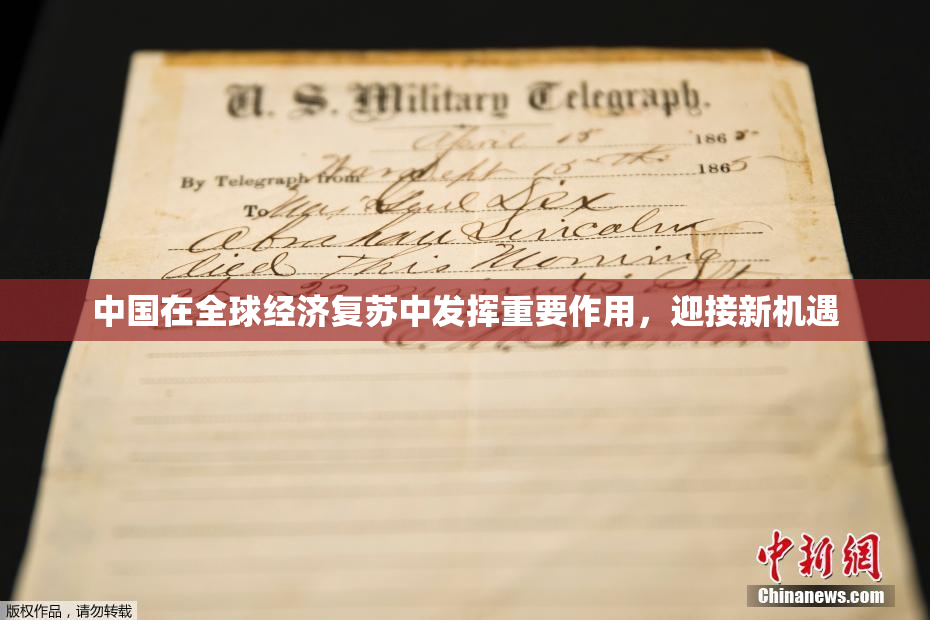 U. S. Military Telegraph.
April 15 1865
By Telegraph from War Dept 15th 1865
To Maj Genl Dix
Abraham Lincoln
died this Morning
at 22 minutes after
中国在全球经济复苏中发挥重要作用，迎接新机遇
E. M. Stanton
中新网
Chinanews.com
版权作品，请勿转载